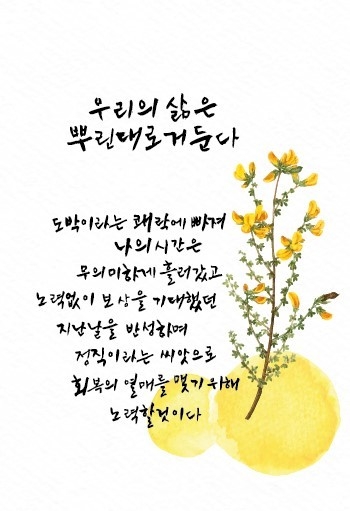 우리의 삶은
뿌린대로거둔다
도박이라는 쾌락에 빠져
나의 시간은
무의미하게 흘러갔고
노력없이 보상을 기대했던
지난날을 반성하며
정직이라는 씨앗으로
회복의 열매를 맺기 위해
노력할것이다